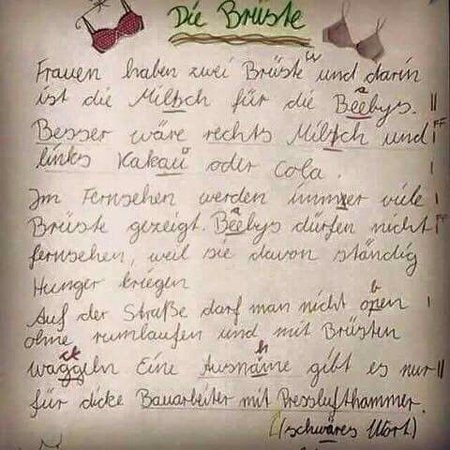 Die Brüste
Frauen haben zwei Brüste und darin
ist die Miltsch für die Beebys.
Besser wäre rechts Miltsch und
links Kakau oder Cola.
Im Fernsehen werden immer viele
Brüste gezeigt. Beebys dürfen nicht
fernsehen, weil sie davon ständig
Hunger kriegen
Auf der Straße darf man nicht open
ohne rumlaufen und mit Brüsten
waggeln Eine Ausnáme gibt es nur
für dicke Bauarbeiter mit Presslufthammer.
(schwäres Wort)